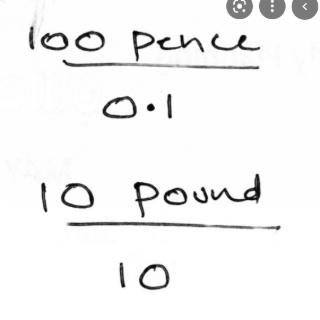 100 pence
0.1
10 pound
10